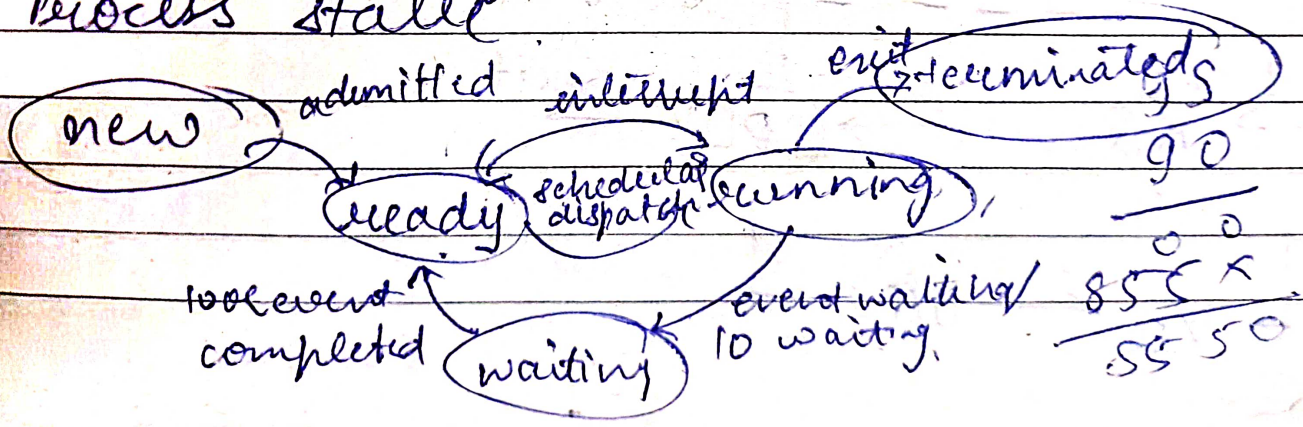 Process state
new
admitted
interrupt
exit
terminated
95
90
ready
scheduler
dispatch
running
0 0
855 x
5550
event
completed
waiting
event waiting/
IO waiting.